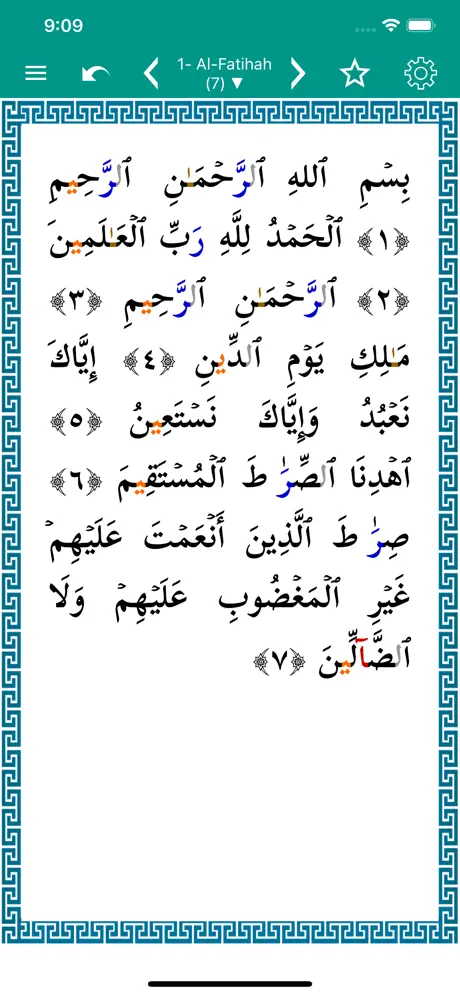 9:09
1- Al-Fatihah
(7) ▼
بِسۡمِ ٱللهِ ٱلرَّحۡمَـٰنِ ٱلرَّحِيمِ
﴿١﴾ ٱلۡحَمۡدُ لِلَّهِ رَبِّ ٱلۡعَـٰلَمِينَ
﴿٢﴾ ٱلرَّحۡمَـٰنِ ٱلرَّحِيمِ ﴿٣﴾
مَـٰلِكِ يَوۡمِ ٱلدِّينِ ﴿٤﴾ إِيَّاكَ
نَعۡبُدُ وَإِيَّاكَ نَسۡتَعِينُ ﴿٥﴾
ٱهۡدِنَا ٱلصِّرَٰطَ ٱلۡمُسۡتَقِيمَ ﴿٦﴾
صِرَٰطَ ٱلَّذِينَ أَنۡعَمۡتَ عَلَيۡهِمۡ
غَيۡرِ ٱلۡمَغۡضُوبِ عَلَيۡهِمۡ وَلَا
ٱلضَّآلِّينَ ﴿٧﴾